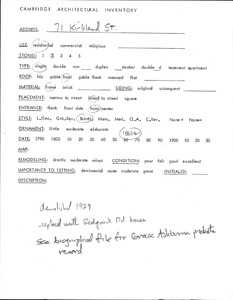 CAMBRIDGE ARCHITECTURAL INVENTORY
ADDRESS: 71 Kirkland St.
USE: residential commercial religious
STORIES: 1 2 3 4 5
TYPE: single double row duplex decker double d tenement apartment
ROOF: hip gable front gable flank mansard flat
MATERIAL: frame brick SIDING: original subsequent
PLACEMENT: narrow to street broad to street square
ENTRANCE: flank front side front/center
STYLE: Ital., Mans., Med., G.A., C.Rev., None
ORNAMENT: little moderate elaborate
DATE: 1790 1800 10 20 30 40 50 60 70 80 90 1900 10 20 30
MAP:
REMODELING: drastic moderate minor CONDITION: poor fair good excellent
IMPORTANCE TO SETTING: detrimental none moderate great INITIALED:
DESCRIPTION:
demolished 1979
replaced with Sedgwick Rd house
See biographical file for Grace Ashburn probate
record